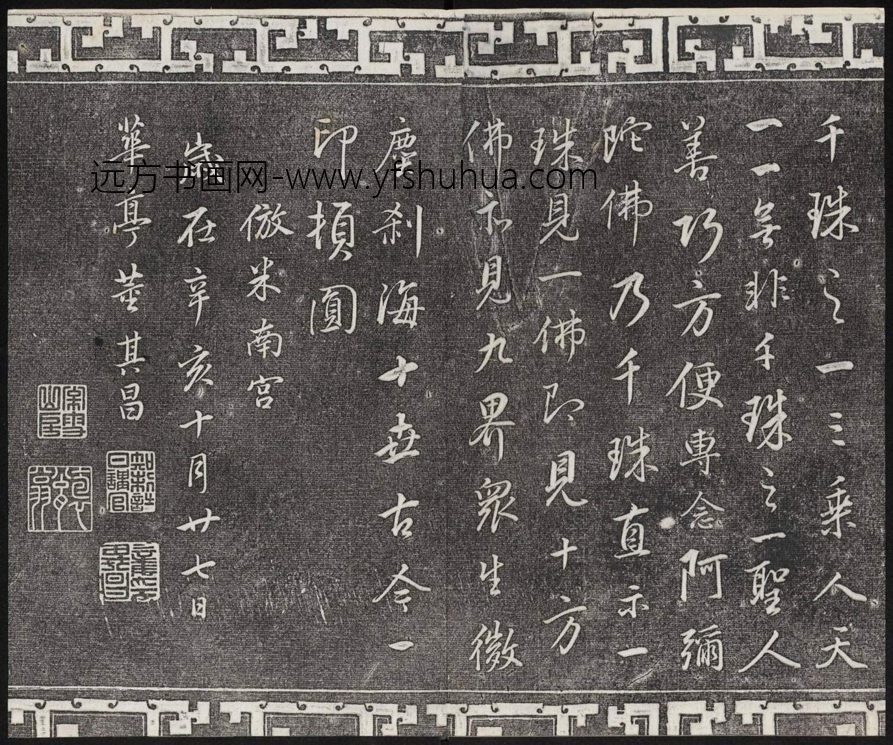 千珠之一三乘人天
一一无非千珠之一聖人
善巧方便專念阿彌
陀佛乃千珠直示一
珠見一佛即見十方
佛亦見九界眾生微
塵刹海十世古今一
印頓圓
倣米南宮
歲在辛亥十月廿七日
華亭董其昌
知制誥日講官
董其昌
远方书画网-www.yfshuhua.com